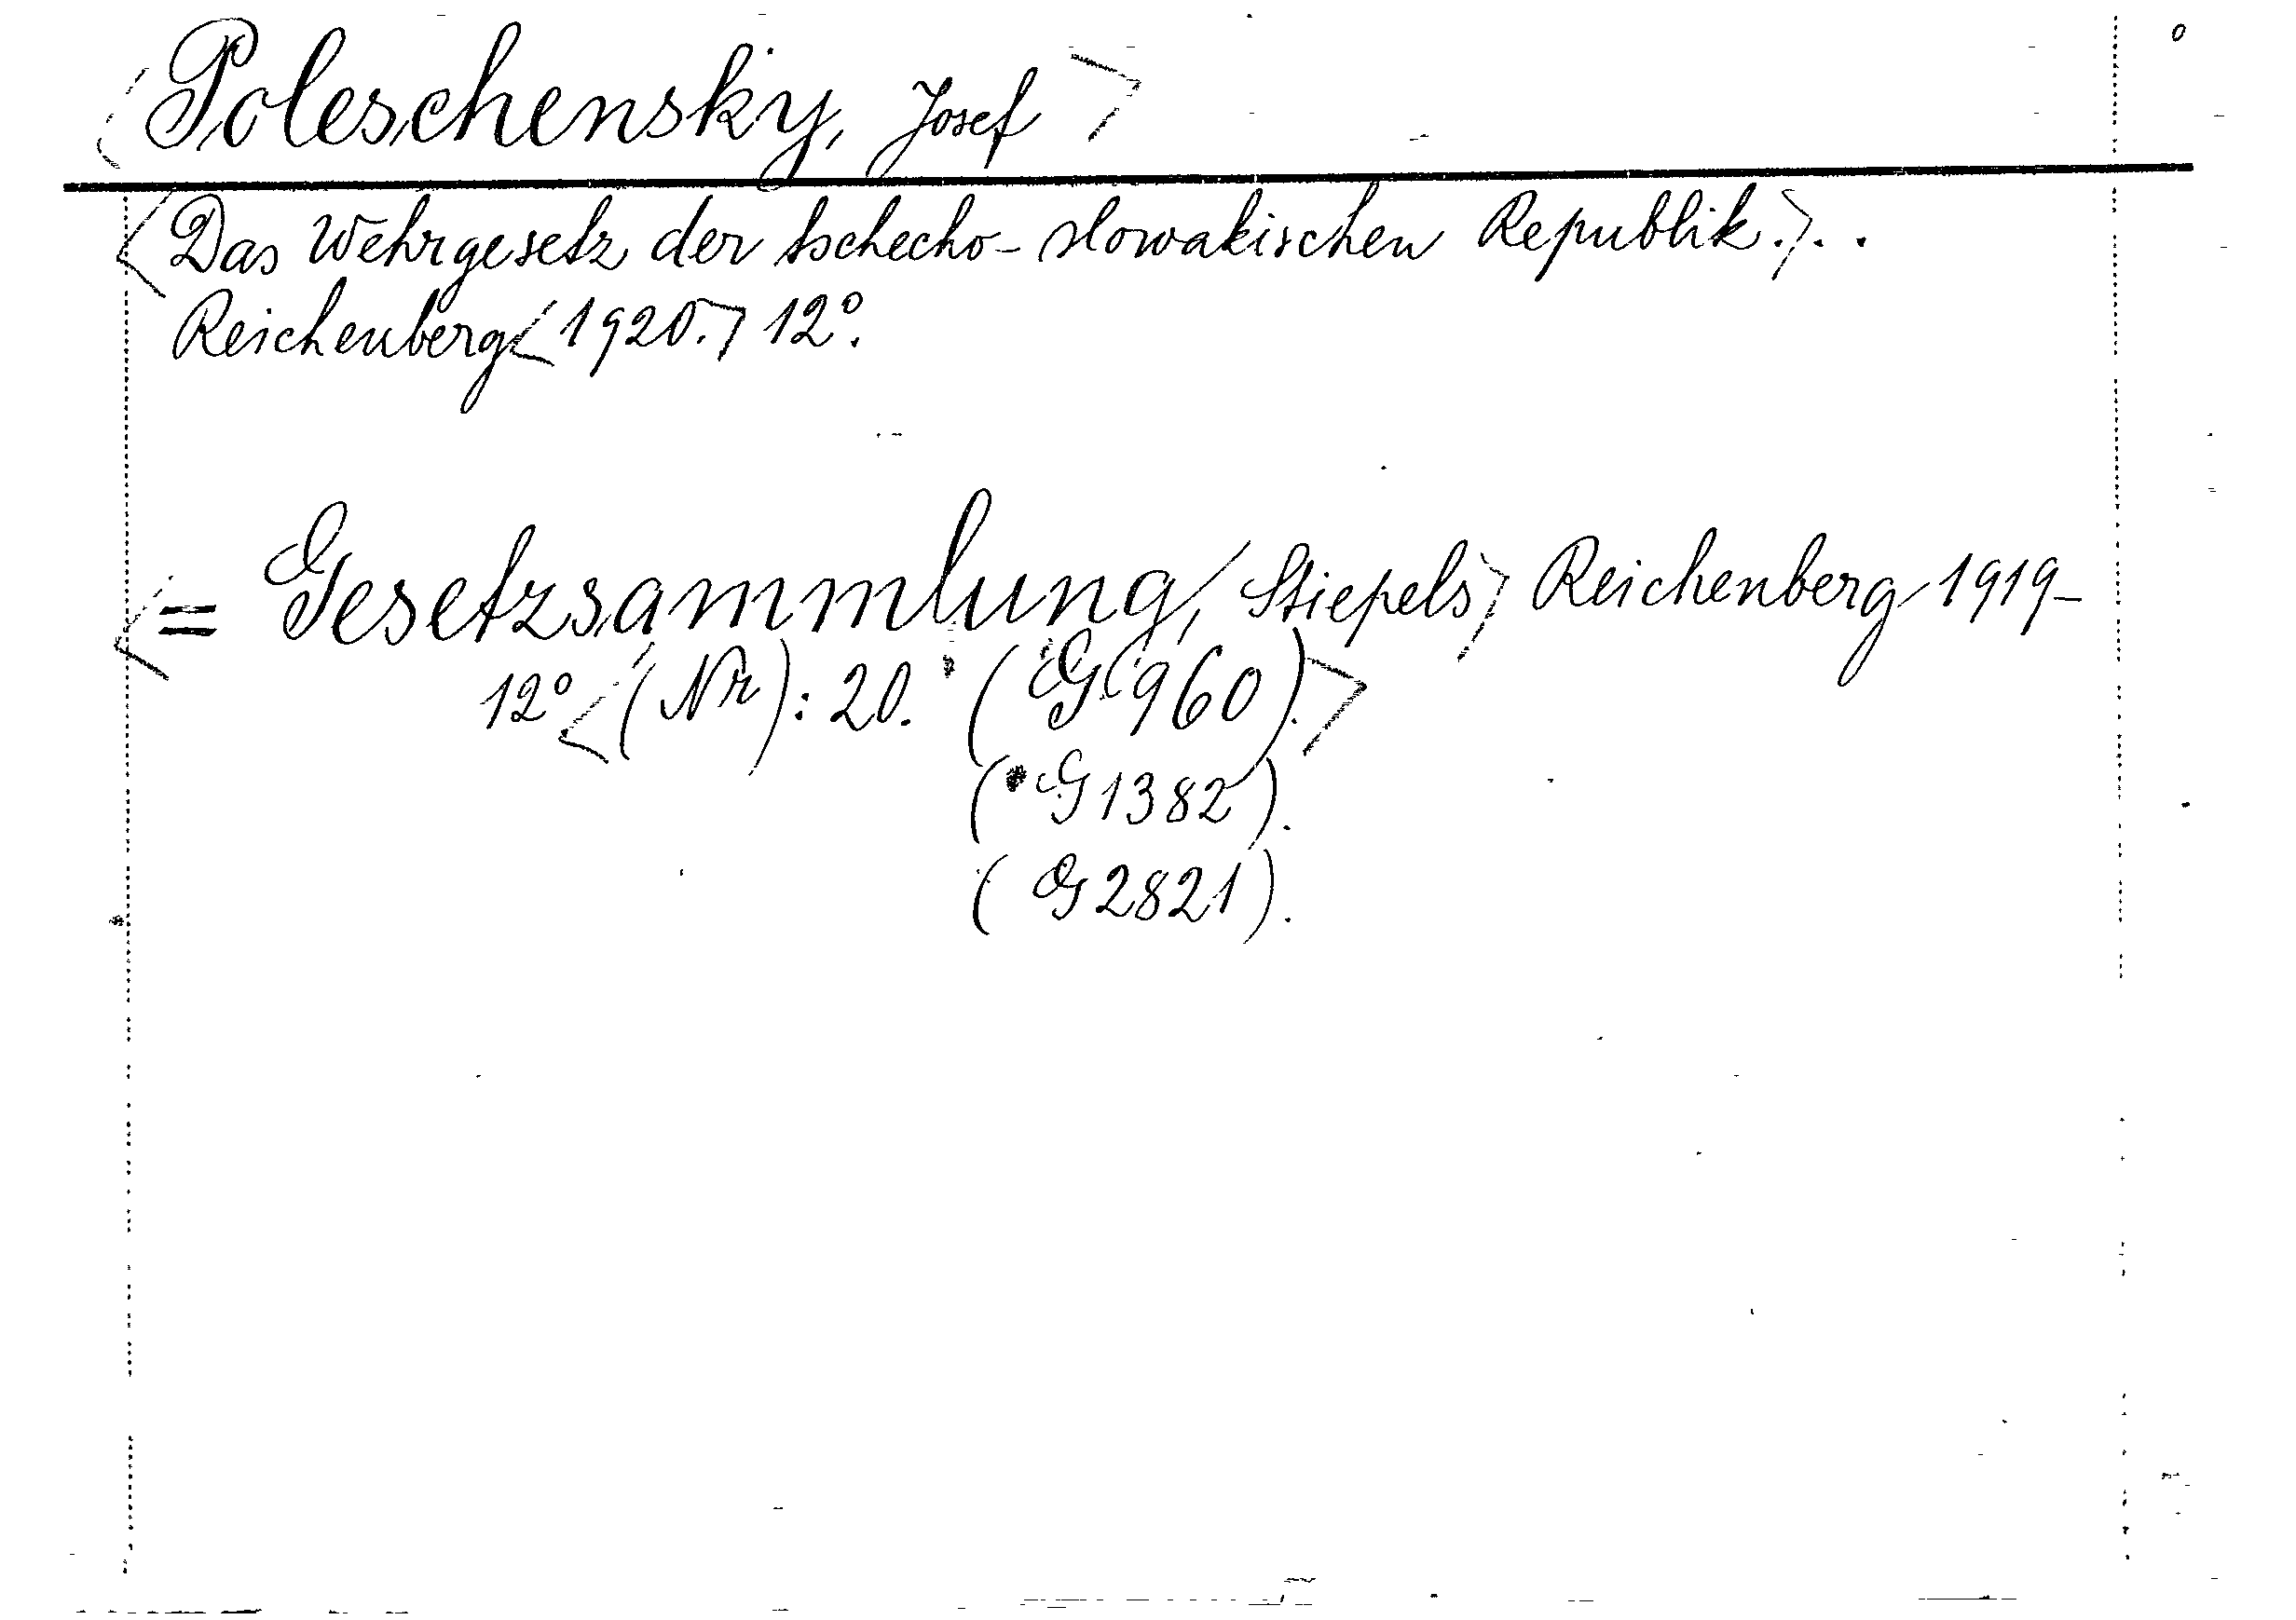 <Poleschensky, Josef>
<Das Wehrgesetz der tschecho-slowakischen Republik.>..
Reichenberg <1920.> 12°.
<= Gesetzsammlung, Stiepels> Reichenberg 1919-
12° <(Nr): 20. (G 960).>
(*G 1382).
(G 2821).